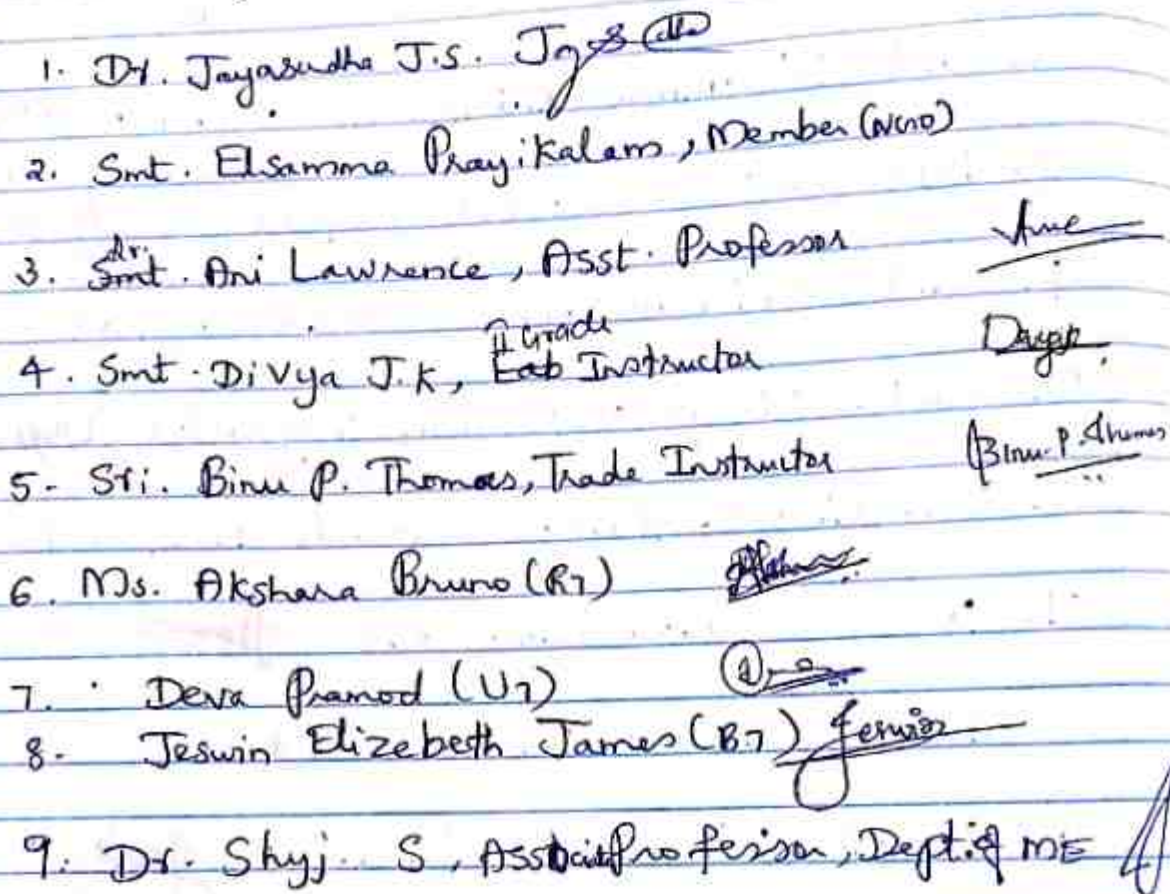 1. Dr. Jayasudha J.S.
2. Smt. Elsamma Prayikalam, Member (NGO)
3. Dr. Smt. Ani Lawrence, Asst. Professor
4. Smt. Divya J.K, II Grade Lab Instructor
5. Sri. Binu P. Thomas, Trade Instructor Binu P. Thomas
6. Ms. Akshara Bruno (R7)
7. Deva Pramod (U7)
8. Jeswin Elizebeth James (B7) Jeswin
9. Dr. Shyj. S, Associate Professor, Dept. of ME